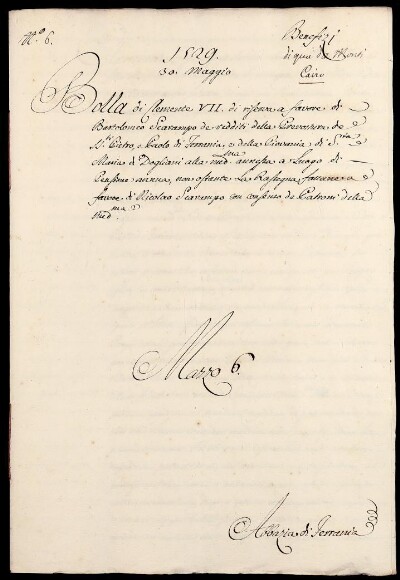 N.º 6.
1529.
30. Maggio
Benefizj
di qua da Monti
Cairo
Bolla di Clemente VII. di riserva a favore di
Bartolomeo Scarampo de redditi della Prevostura de
S.ti Pietro, e Paolo di Ferrania, e della Pievania di S.ta
Maria di Dogliani alla med.ma annessa a luogo di
Pensione annua, non ostante la Rassegna, fattane a
favore di Nicolao Scarampo con consenso de Patroni della
med.ma
Mazzo 6.
Abbazia di Ferrania